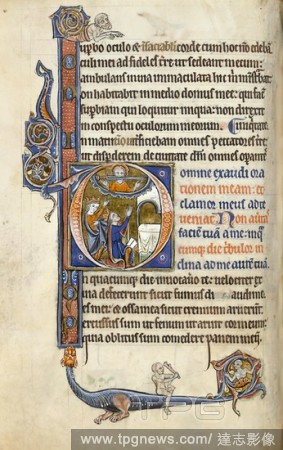 oculo & insatiabili corde cum hoc
culi mei ad fideles tre ut sedeant mecum:
ambulans in uia immaculata
on habitabit in medio domus mee: qui facit
supbiam qui loquitur iniqua: non direxit
in conspectu oculorum meorum.
interficiebam omnes peccatores tre
ut disperderem de ciuitate dni omnes
omine exaudi ora
tionem meam: et
clamor meus ad te
ueniat. Non auertas
faciem tuam a me: in
cumque die tribulor in
clina ad me aurem tuam.
n quacumque die inuocauero te: uelociter ex
ia defecerunt sicut fumus dies
mei: & ossa mea sicut cremium aruerunt.
ercussus sum ut fenum et aruit cor meum:
quia oblitus sum comedere panem meum.
TPG
www.tpgnews.com/達志影像